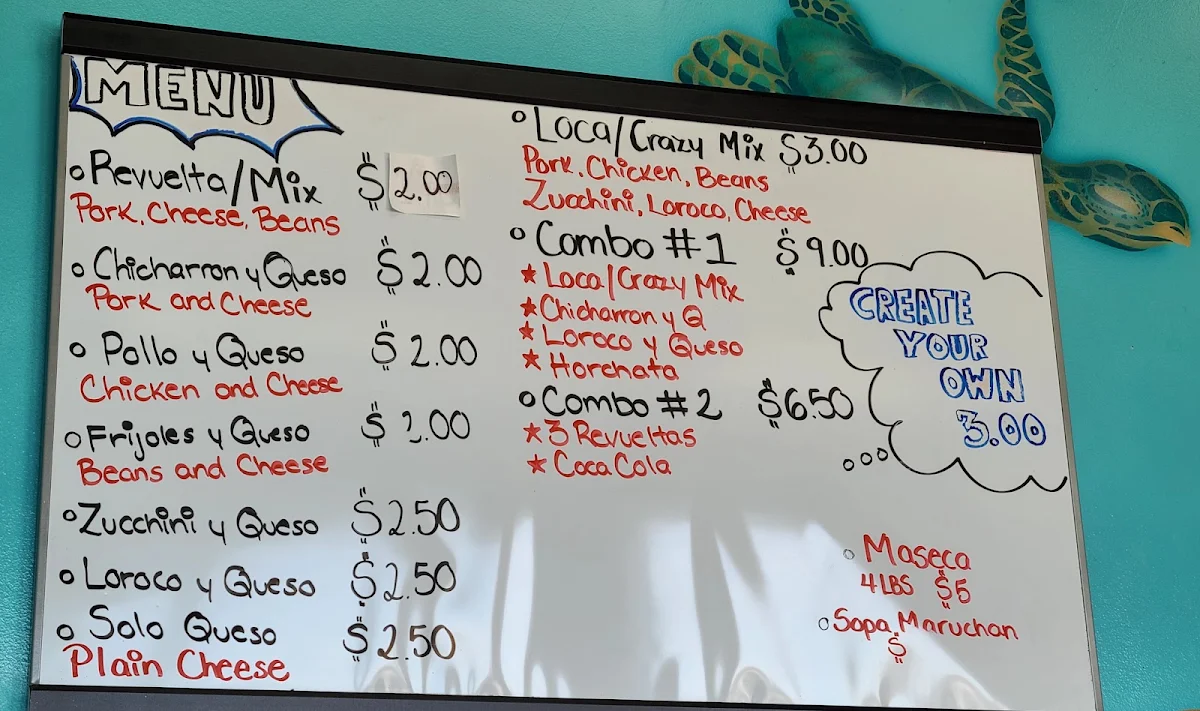 MENU
Revuelta/Mix $2.00
Pork, Cheese, Beans
Chicharron y Queso $2.00
Pork and Cheese
Pollo y Queso $2.00
Chicken and Cheese
Frijoles y Queso $2.00
Beans and Cheese
Zucchini y Queso $2.50
Loroco y Queso $2.50
Solo Queso $2.50
Plain Cheese
Loca/Crazy Mix $3.00
Pork, Chicken, Beans
Zucchini, Loroco, Cheese
Combo #1 $9.00
★ Loca/Crazy Mix
★ Chicharron y Q
★ Loroco y Queso
★ Horchata
Combo #2 $6.50
★ 3 Revueltas
★ Coca Cola
CREATE
YOUR
OWN
3.00
Maseca
4 LBS $5
Sopa Maruchan
$